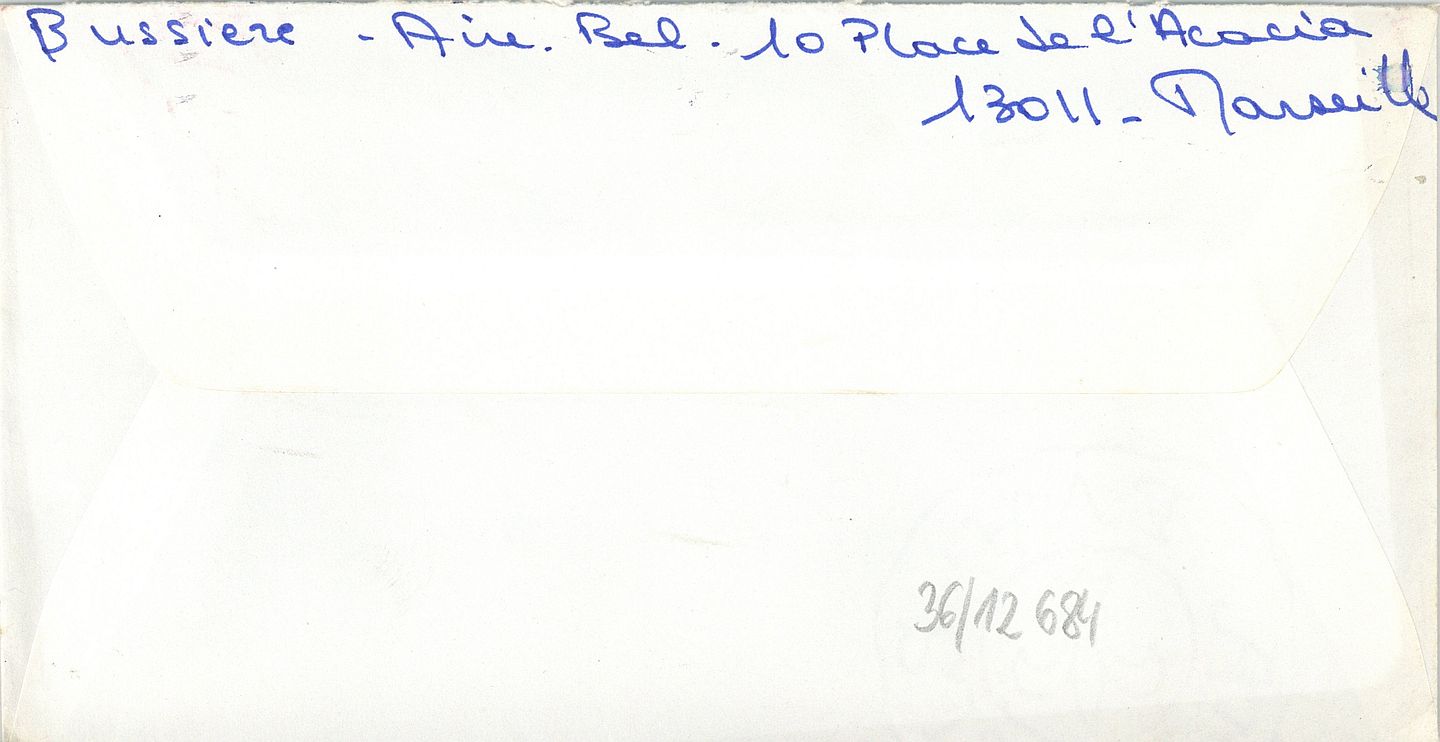 Bussiere - Air. Bel. 10 Place de l'Acacia
13011 - Marseille
36/12 684